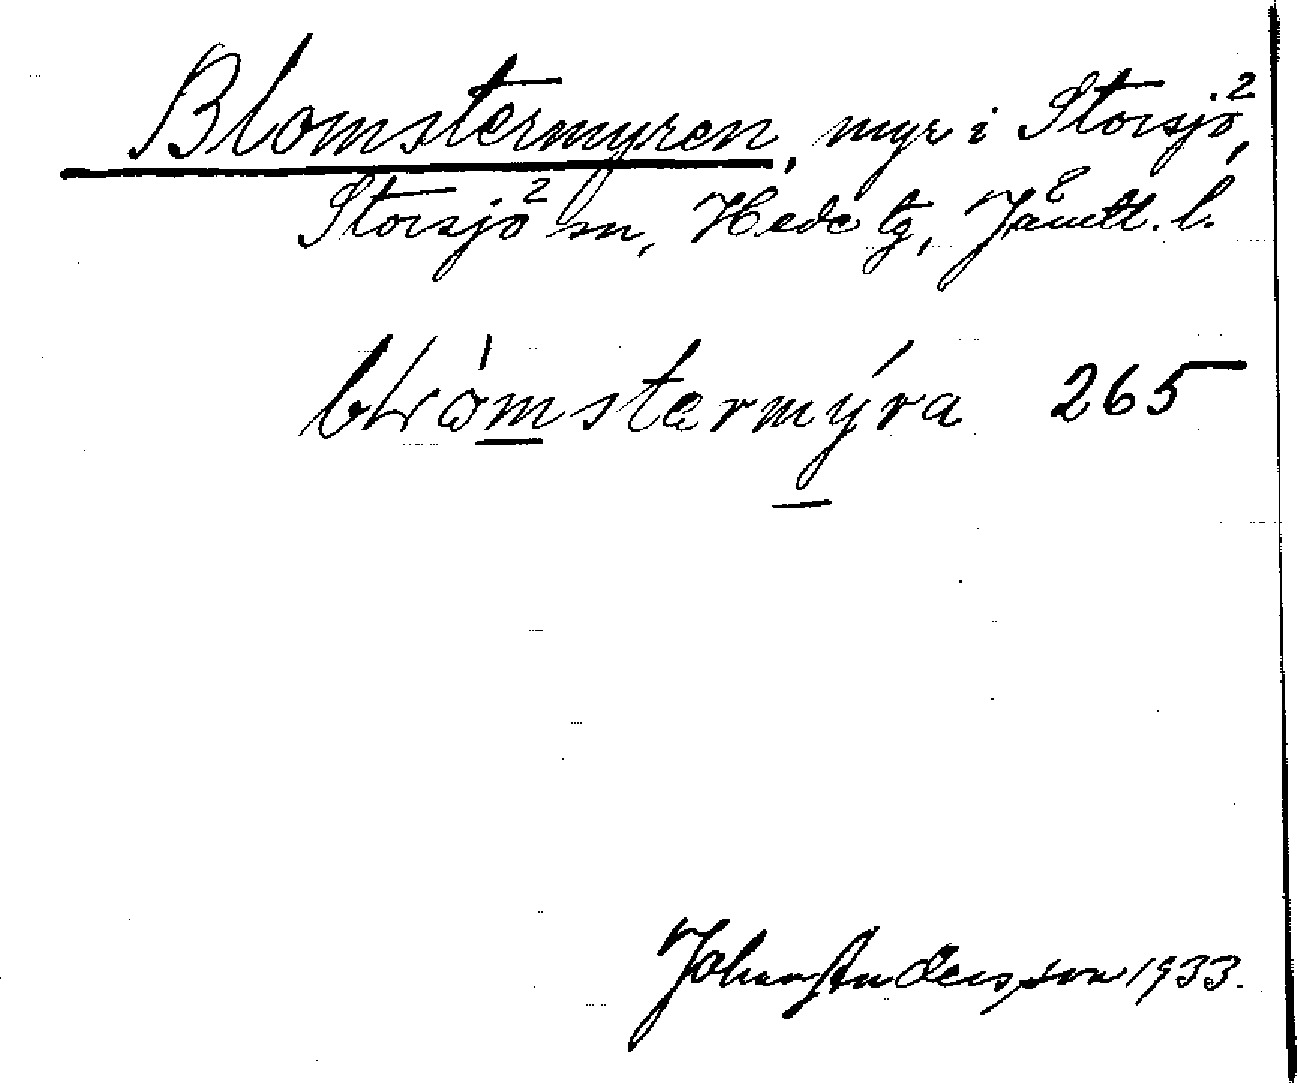 Blomstermyren, myr i Storsjö,
Storsjö sn, Hede tg, Jämtl. l.
blomstermýra 265
Johan Andersson 1933.